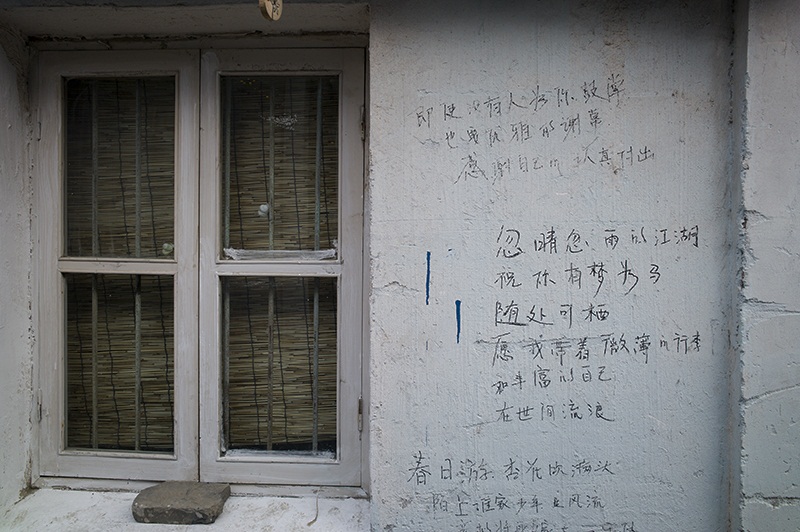 即使没有人为你鼓掌
也要优雅的谢幕
感谢自己的认真付出
忽晴忽雨的江湖
祝你有梦为马
随处可栖
愿我带着微薄的行李
和丰富的自己
在世间流浪
春日游 杏花吹满头
陌上谁家少年足风流